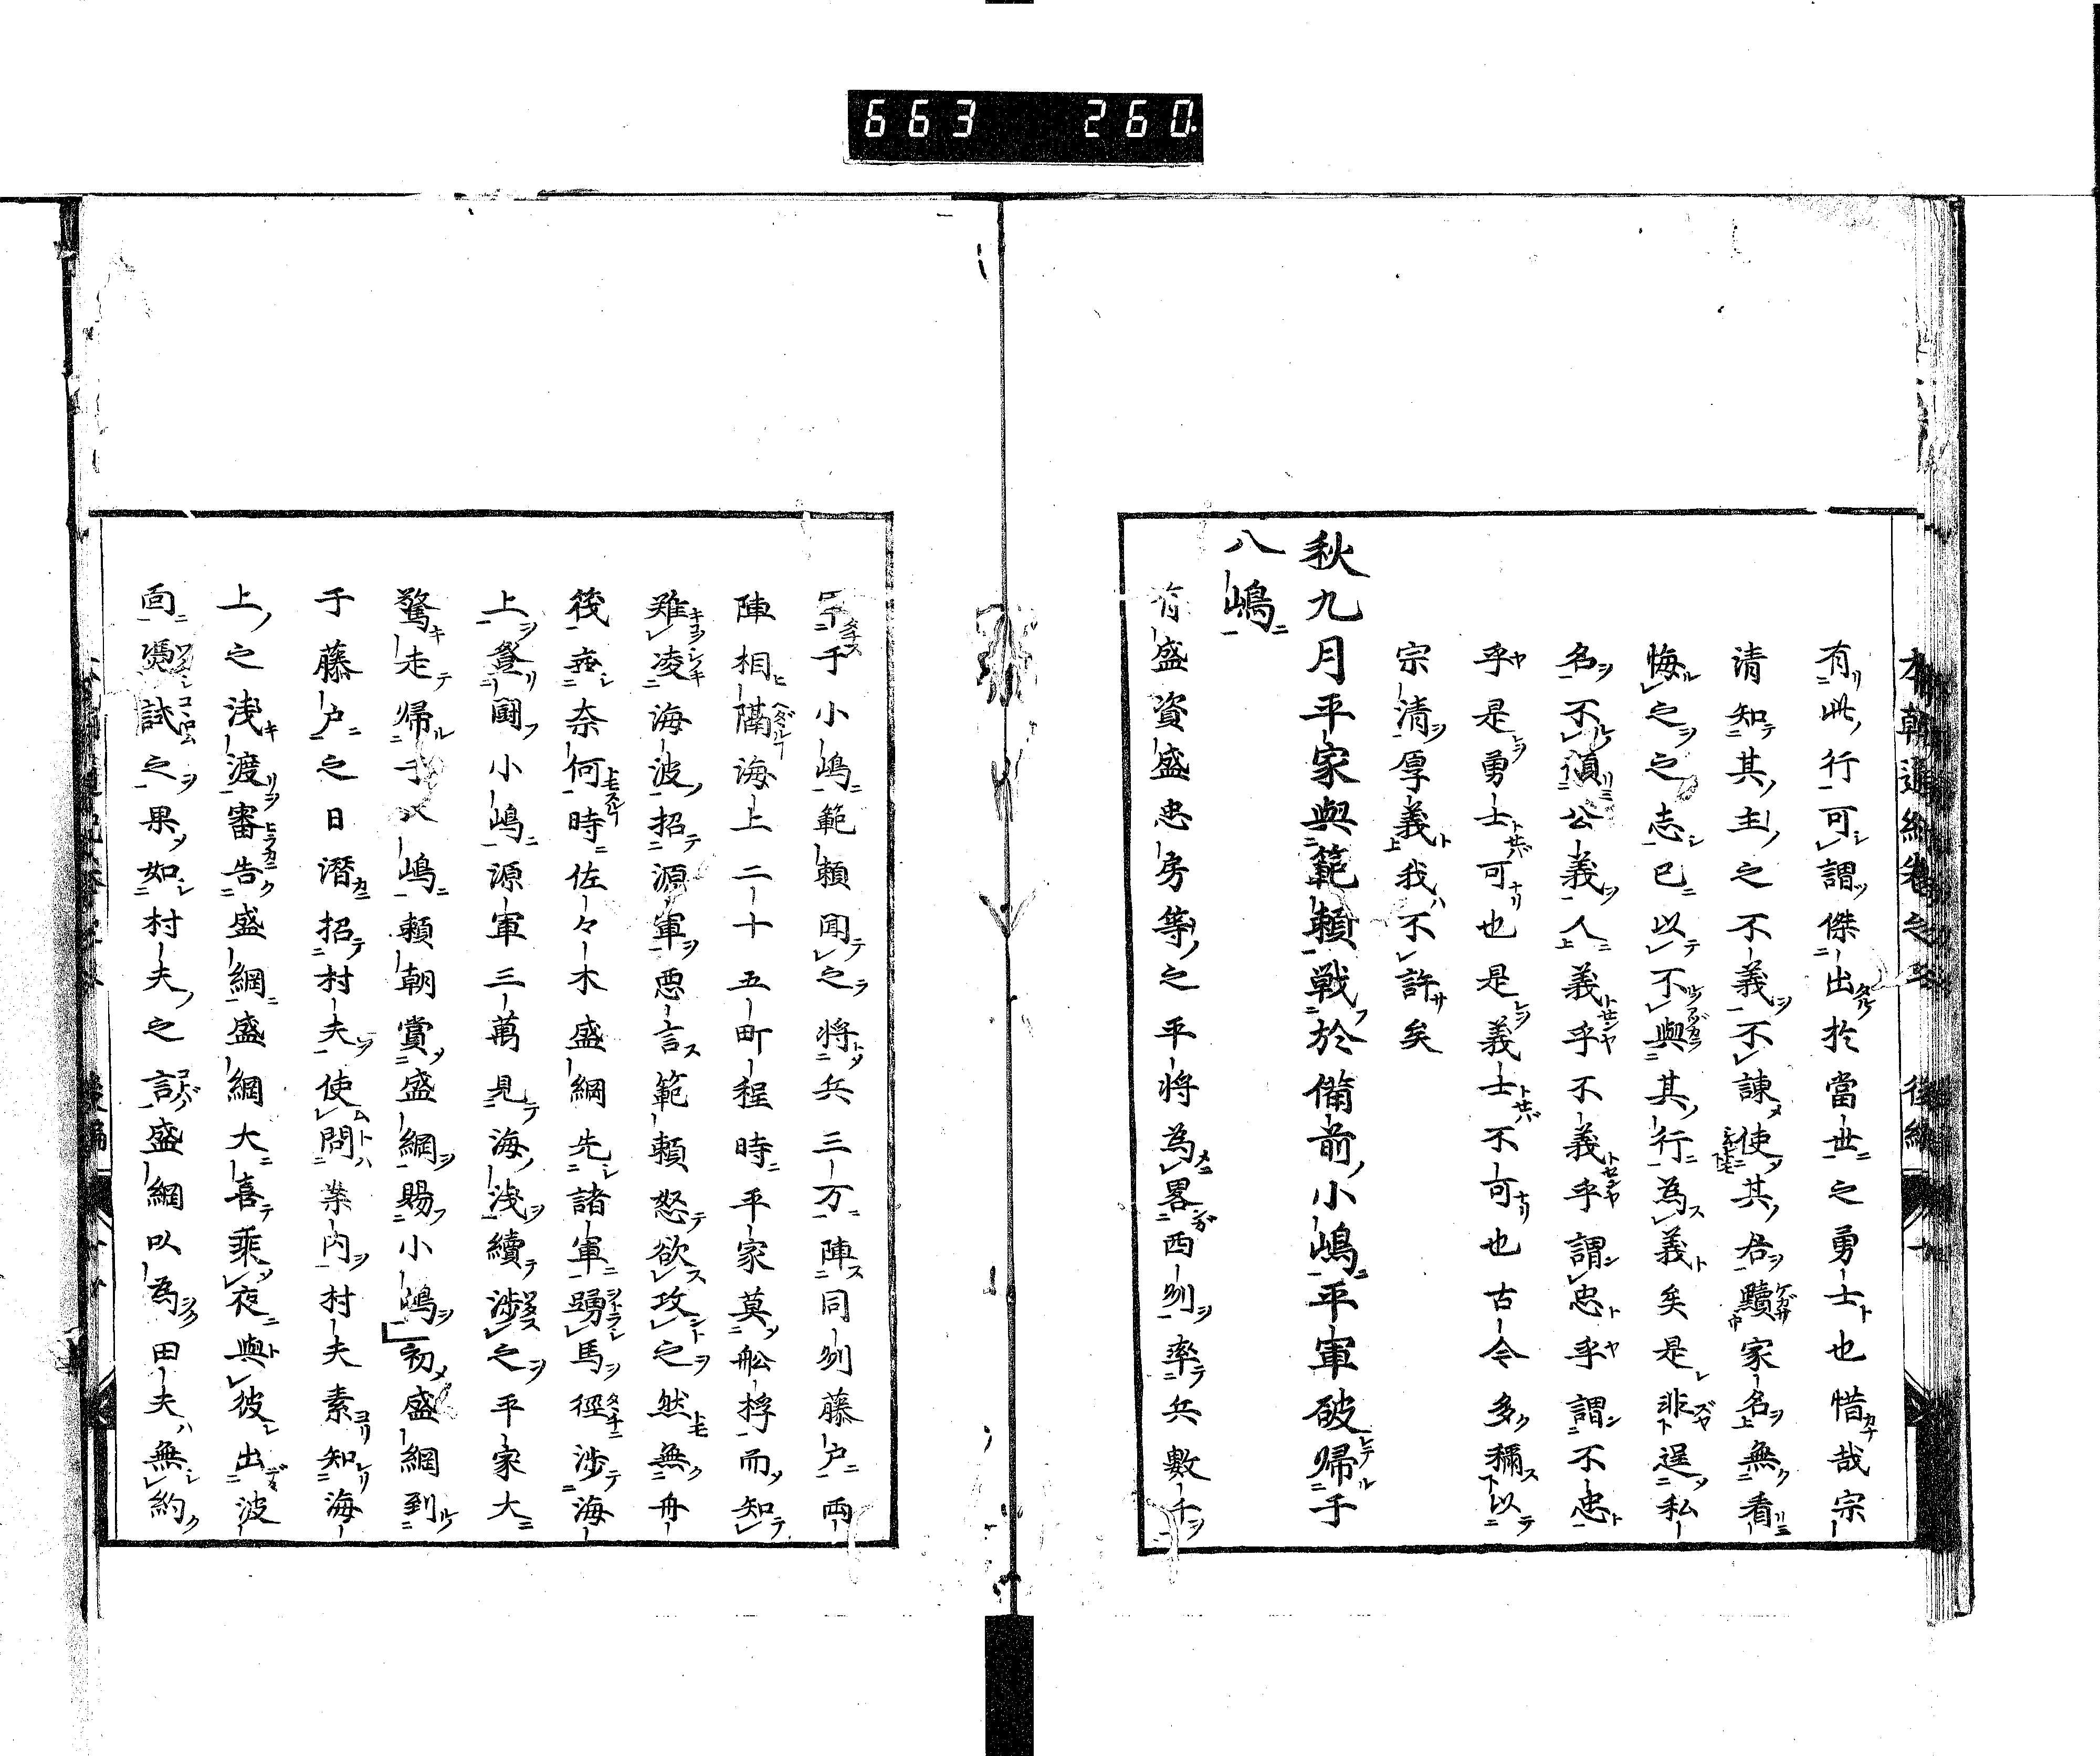 663 260
有此行可謂傑出於當世之勇士也惜哉宗
清知其主之不義不諫使其君贖家名無看
悔之之志已以不與其行為義矣是非逞私
名不順公義人義乎不義乎謂忠乎謂不忠
乎是勇士可也是義士不可也古今多稱以
宗清厚義我不許矣
秋九月平家與範頼戦於備前小嶋平軍破帰于
八嶋
有盛資盛忠房等之平将為畧西州率兵數千
于小嶋範頼聞之将兵三万陣同州藤户両
陣相隔海上二十五町程時平家莫舩桴而知
難凌海波招源軍悪言範頼怒欲攻之然無舟
筏奈何時佐々木盛綱先諸軍踴馬徑渉海
上登圖小嶋源軍三萬見海浅續渉之平家大
驚走帰于八嶋頼朝賞盛綱賜小嶋初盛綱到
于藤户之日潛招村夫使問案内村夫素知海
上之浅渡審告盛綱盛綱大喜乘夜與彼出波
面憑試之果如村夫之言盛綱以為田夫無約